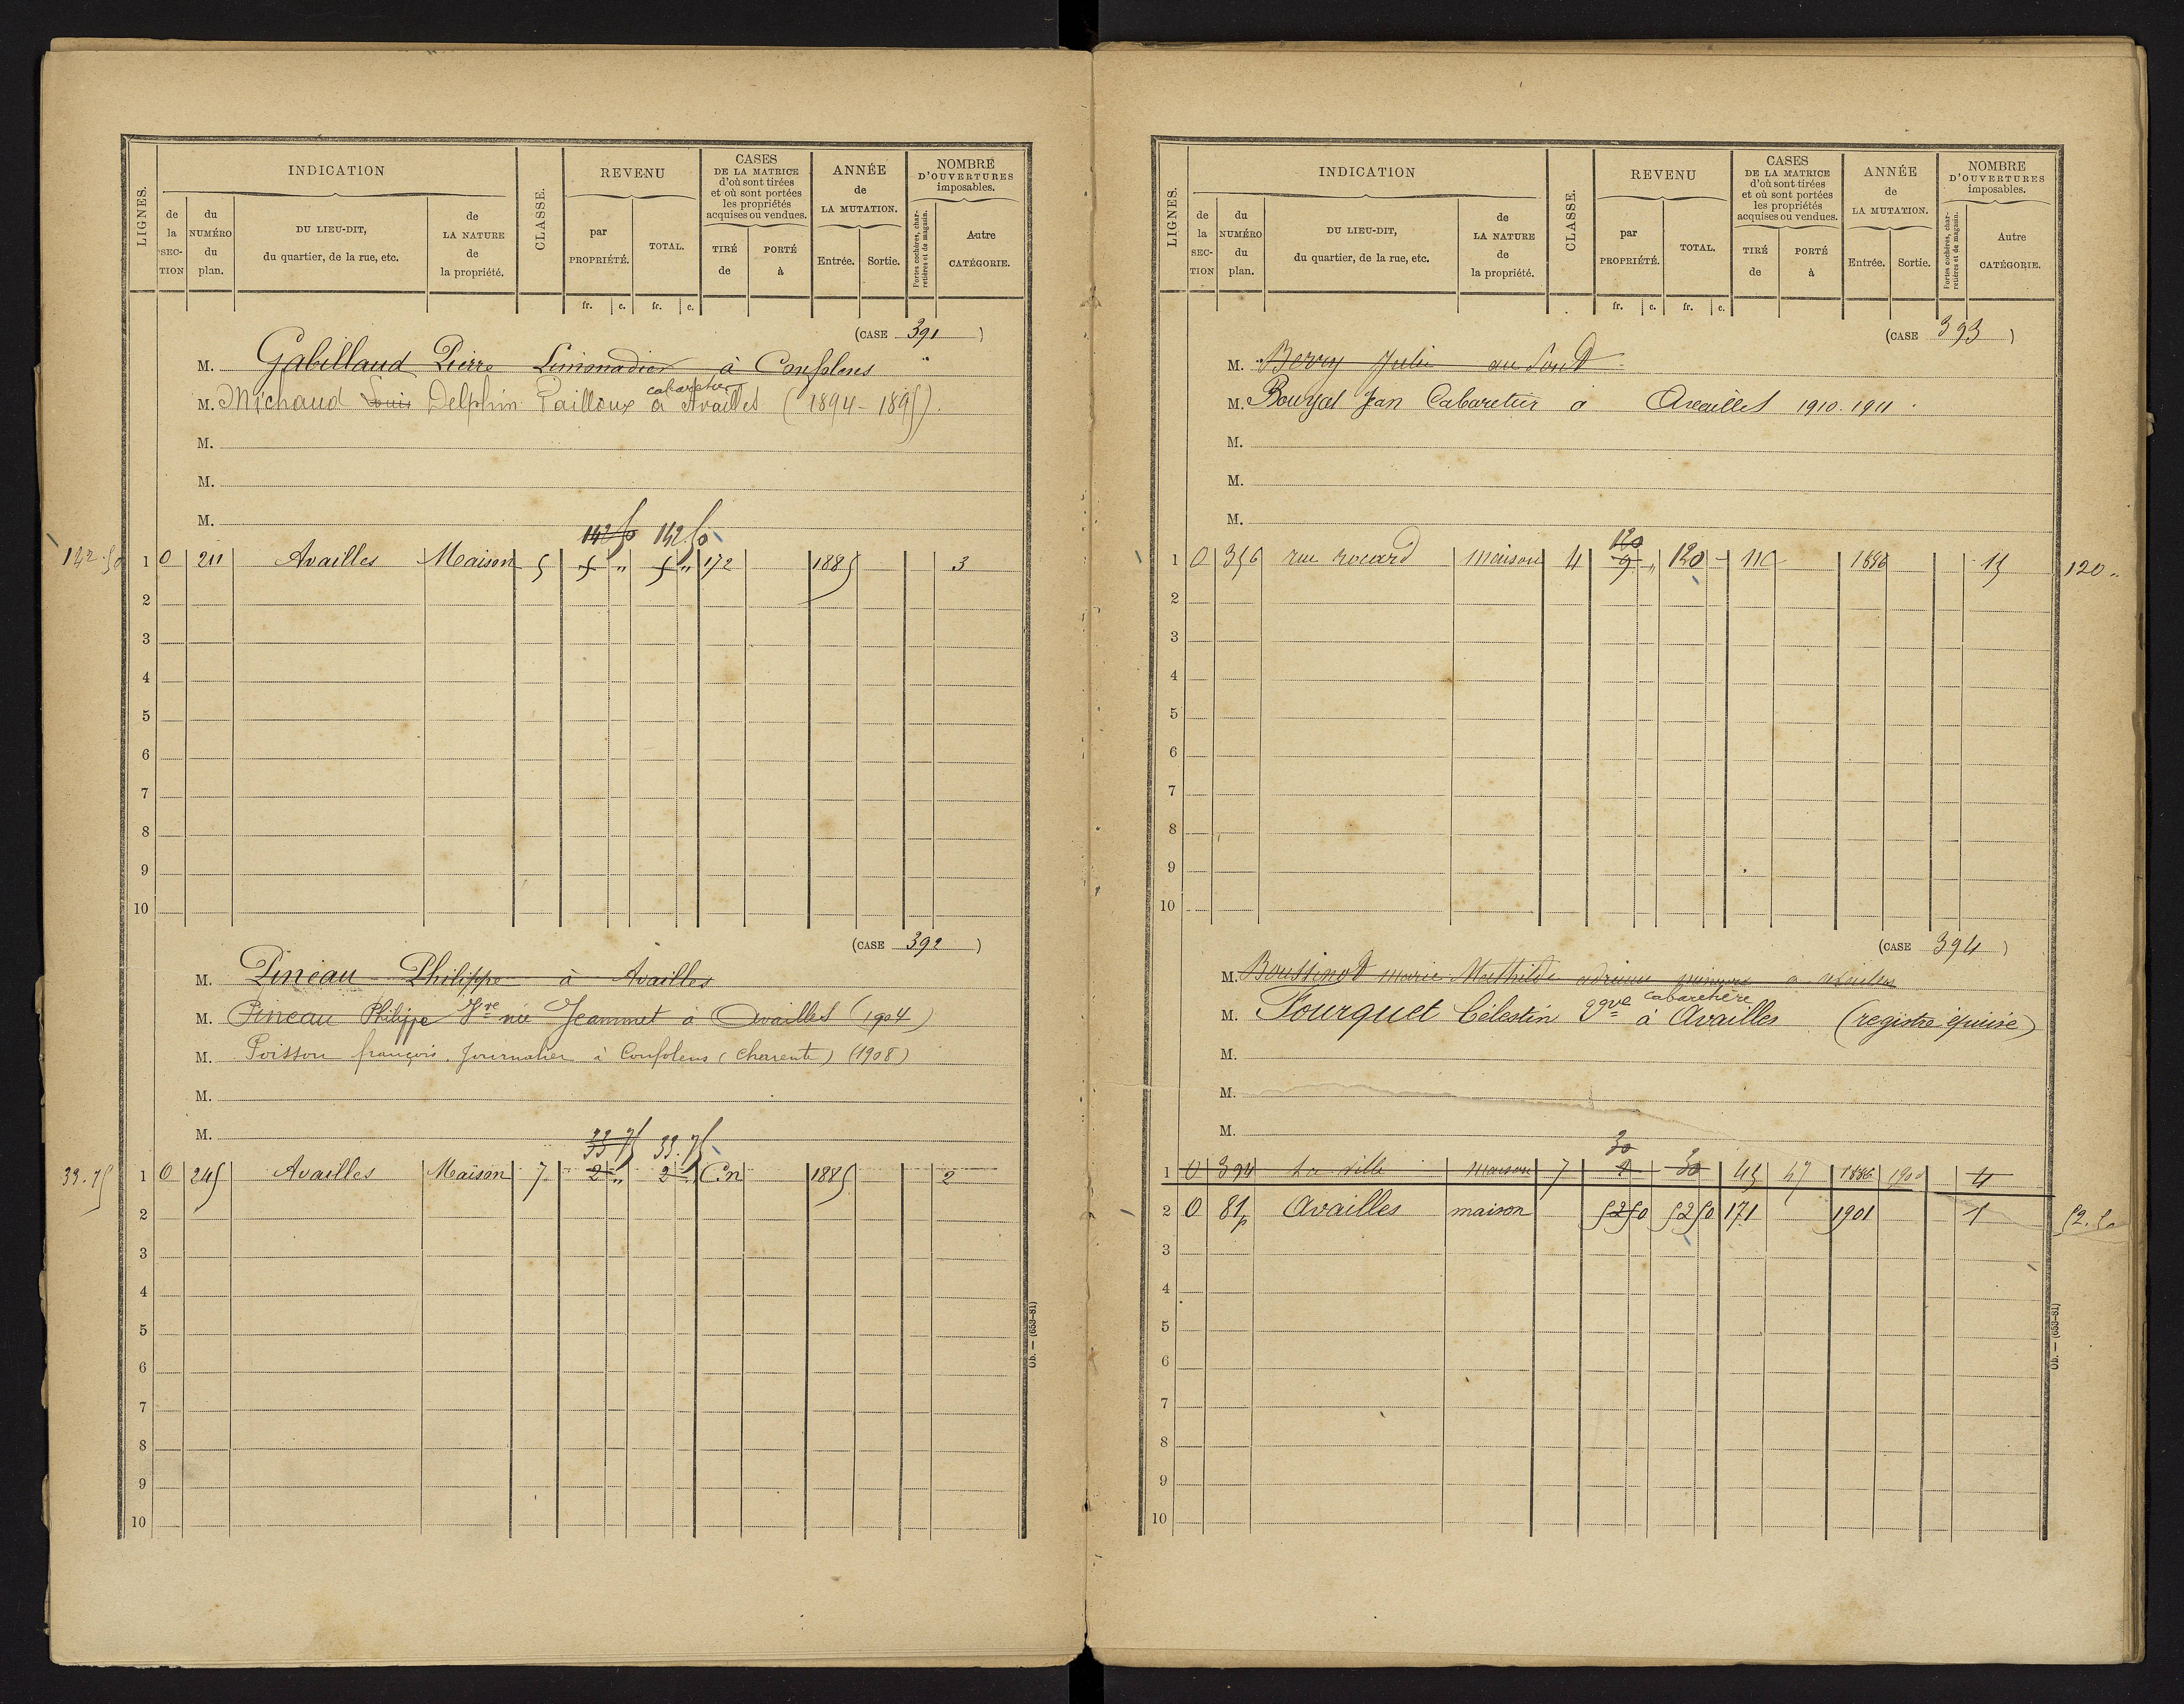 LIGNES.
INDICATION
de la SEC-TION
du NUMÉRO du plan.
DU LIEU-DIT, du quartier, de la rue, etc.
de LA NATURE de la propriété.
CLASSE.
REVENU
par PROPRIÉTÉ.
TOTAL.
CASES DE LA MATRICE d'où sont tirées et où sont portées les propriétés acquises ou vendues.
TIRÉ de
PORTÉ à
ANNÉE de LA MUTATION.
Entrée.
Sortie.
NOMBRE D'OUVERTURES imposables.
Portes cochères, charretières et de magasin.
Autre CATÉGORIE.
fr. c. fr. c.
(CASE 391)
M. Gabillaud Pierre Limonadier à Confolens
cabaretier
M. Michaud Louis Delphin Pailloux à Availles (1894-1895).
M.
M.
M.
142 50 142.50
142.50 1 O 211 Availles Maison 5 5 " 5 " 172 1885 3
2
3
4
5
6
7
8
9
10
(CASE 392)
M. Pineau Philippe à Availles
M. Pineau Philippe Vve née Jeammet à Availles (1904)
M. Poisson françois. Journalier à Confolens (Charente) (1908)
M.
M.
33 75 33.75
33.75 1 O 245 Availles Maison 7 2 " 2 " C.n 1885 2
2
3
4
5
6
7
8
9
10
Ob. — (653-81)
LIGNES.
INDICATION
de la SEC-TION
du NUMÉRO du plan.
DU LIEU-DIT, du quartier, de la rue, etc.
de LA NATURE de la propriété.
CLASSE.
REVENU
par PROPRIÉTÉ.
TOTAL.
CASES DE LA MATRICE d'où sont tirées et où sont portées les propriétés acquises ou vendues.
TIRÉ de
PORTÉ à
ANNÉE de LA MUTATION.
Entrée.
Sortie.
NOMBRE D'OUVERTURES imposables.
Portes cochères, charretières et de magasin.
Autre CATÉGORIE.
fr. c. fr. c.
(CASE 393)
M. Julie au
M. Jean Cabaretier à Availles 1910. 1911.
M.
M.
M.
120
1 O 356 rue rocard maison 4 9 " 120 1886 15 120 "
2
3
4
5
6
7
8
9
10
(CASE 394)
M. Boussinot marie Mathilde mineure a
cabaretière
M. Fourquet Célestin Vve à Availles (registre épuisé)
M.
M.
M.
30
1 O 394 La ville maison 7 2 30 45 47 1886 1900 4
2 O 81p Availles maison 52 50 52 50 171 1901 1 52.50
3
4
5
6
7
8
9
10
Ob. — (653-81)